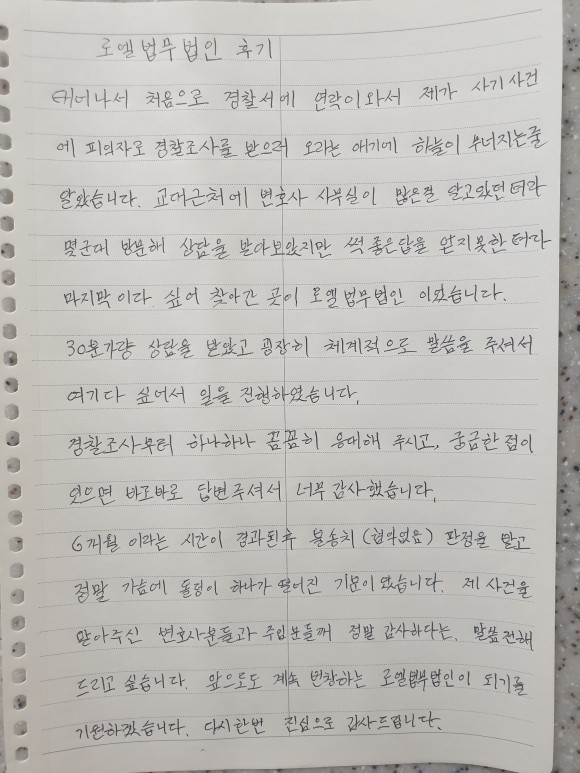 로엘법무법인 후기
태어나서 처음으로 경찰서에 연락이와서 제가 사기사건
에 피의자로 경찰조사를 받으러 오라는 얘기에 하늘이 무너지는줄
알았습니다. 교대근처에 변호사 사무실이 많은걸 알고있던터라
몇군데 방문해 상담을 받아보았지만 썩 좋은답을 얻지못한터다
마지막이다 싶어 찾아간 곳이 로엘법무법인 이었습니다.
30분가량 상담을 받았고 굉장히 체계적으로 말씀을 주셔서
여기다 싶어서 일을 진행하였습니다.
경찰조사부터 하나하나 꼼꼼히 응대해 주시고, 궁금한 점이
있으면 바로바로 답변주셔서 너무 감사했습니다.
6개월 이라는 시간이 경과된후 불송치(혐의없음) 판정을 받고
정말 가슴에 돌덩이 하나가 떨어진 기분이였습니다. 제 사건을
맡아주신 변호사분들과 주임분들께 정말 감사하다는 말씀전해
드리고 싶습니다. 앞으로도 계속 번창하는 로엘법무법인이 되기를
기원하겠습니다. 다시한번 진심으로 감사드립니다.